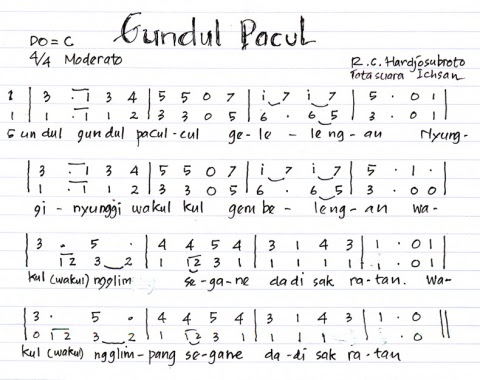 Gundul Pacul
DO = C
4/4 Moderato
R.C. Hardjosubroto
Tata suara Ichsan
1 | 3 . 1 3 4 | 5 5 0 7 | i 7 i 7 | 5 . 0 1 |
1 | 1 . 1 1 2 | 3 3 0 5 | 6 . 6 5 | 3 . 0 1 |
Gundul gundul pacul-cul ge-le-leng-an Nyung-
| 3 . 1 3 4 | 5 5 0 7 | i 7 i 7 | 5 . 1 . |
| 1 . 1 1 2 | 3 3 0 5 | 6 . 6 5 | 3 . 0 0 |
gi-nyunggi wakul kul gembe-leng-an wa-
| 3 . 5 . | 4 4 5 4 | 3 1 4 3 | 1 . 0 1 |
1 2 3 2 | 1 1 2 3 1 | 1 1 1 1 | 1 . 0 1 |
kul (wakul) ngglim se-ga-ne dadi sak ra-tan. Wa-
| 3 . 5 . | 4 4 5 4 | 3 1 4 3 | 1 . 0 ||
0 1 2 3 2 | 1 1 2 3 1 | 1 1 1 1 | 1 . 0 ||
kul (wakul) ngglim-pang se-gane da-di sak ra-tan